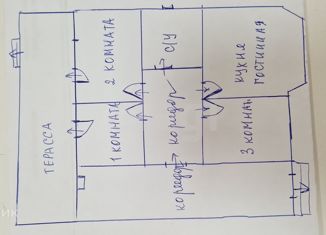 ТЕРАССА
2 КОМНАТА
1 КОМНАТА
С/У
коридор
коридор
КУХНЯ
ГОСТИННАЯ
3 КОМНАТ